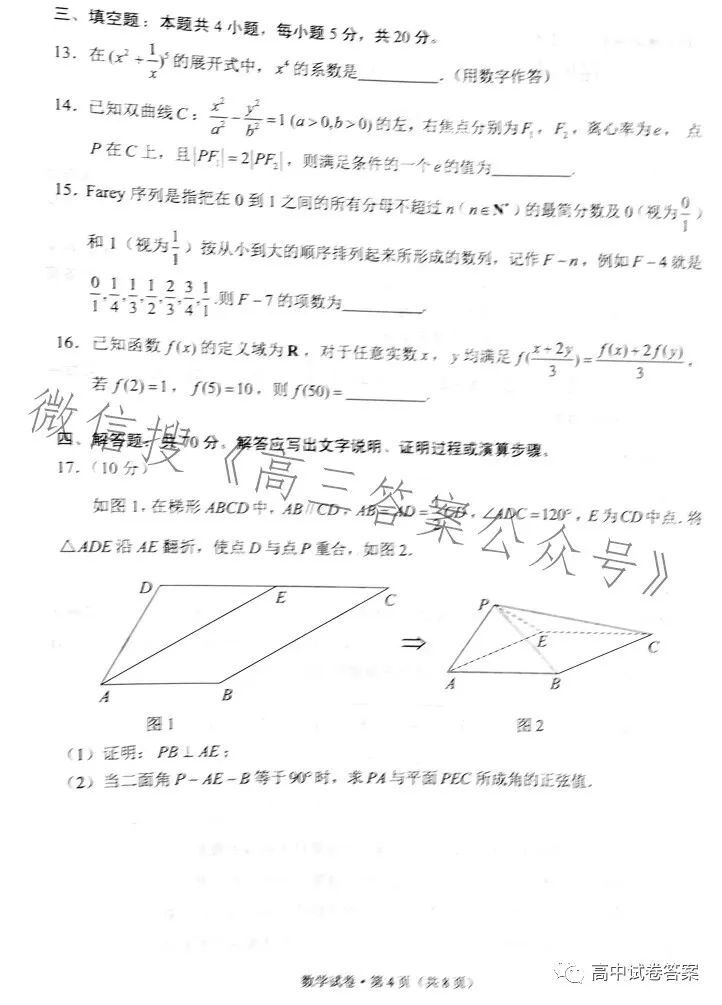 三、填空题:本题共4小题,每小题5分,共20分。
13. 在(x² + 1/x)⁵的展开式中,x⁴的系数是________.(用数字作答)
14. 已知双曲线C:x²/a² − y²/b² = 1 (a>0,b>0)的左,右焦点分别为F₁,F₂,离心率为e,点
P在C上,且|PF₁|=2|PF₂|,则满足条件的一个e的值为________.
15. Farey序列是指把在0到1之间的所有分母不超过n(n∈N*)的最简分数及0(视为0/1)
和1(视为1/1)按从小到大的顺序排列起来所形成的数列,记作F−n,例如F−4就是
0/1,1/4,1/3,1/2,2/3,3/4,1/1.则F−7的项数为________.
16. 已知函数f(x)的定义域为R,对于任意实数x,y均满足f((x+2y)/3)=(f(x)+2f(y))/3,
若f(2)=1,f(5)=10,则f(50)=________.
四、解答题:共70分。解答应写出文字说明、证明过程或演算步骤。
17.(10分)
如图1,在梯形ABCD中,AB∥CD,AB=AD=CD,∠ADC=120°,E为CD中点.将
△ADE沿AE翻折,使点D与点P重合,如图2.
D E C
A B
图1
⇒
P E C
A B
图2
(1)证明:PB⊥AE;
(2)当二面角P−AE−B等于90°时,求PA与平面PEC所成角的正弦值.
微信搜《高三答案公众号》
数学试卷·第4页(共8页)
高中试卷答案